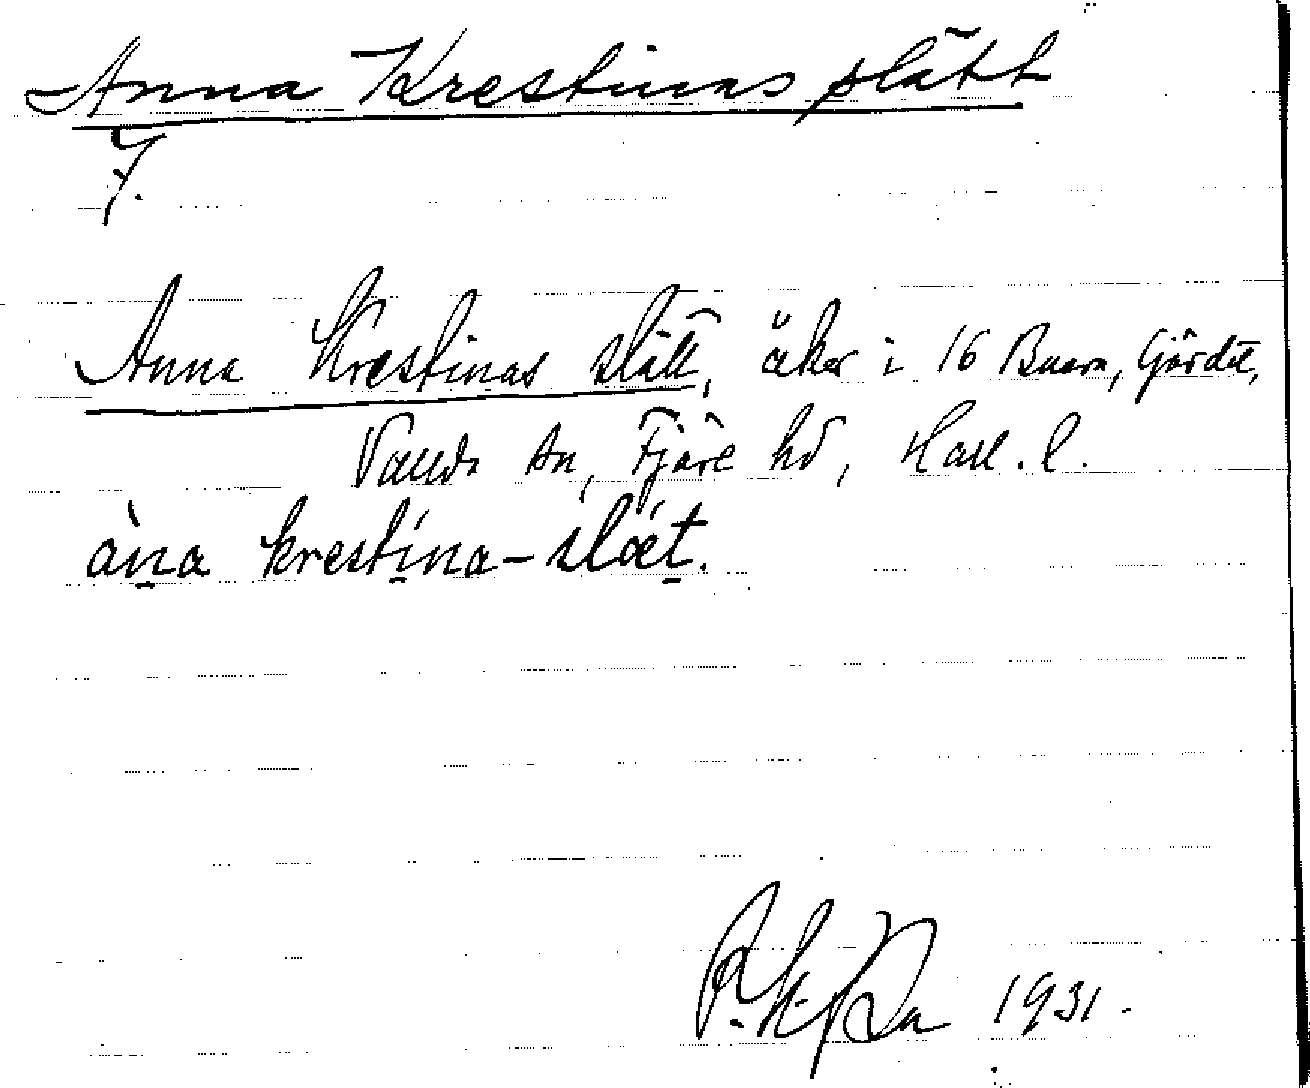 Anna Krestinas slätt
F.
Anna Krestinas slätt, åker i 16 Buara, Gjärdet,
Vallda sn, Fjäre hd, Hall. l.
àna krestína-slǽt.
1931.